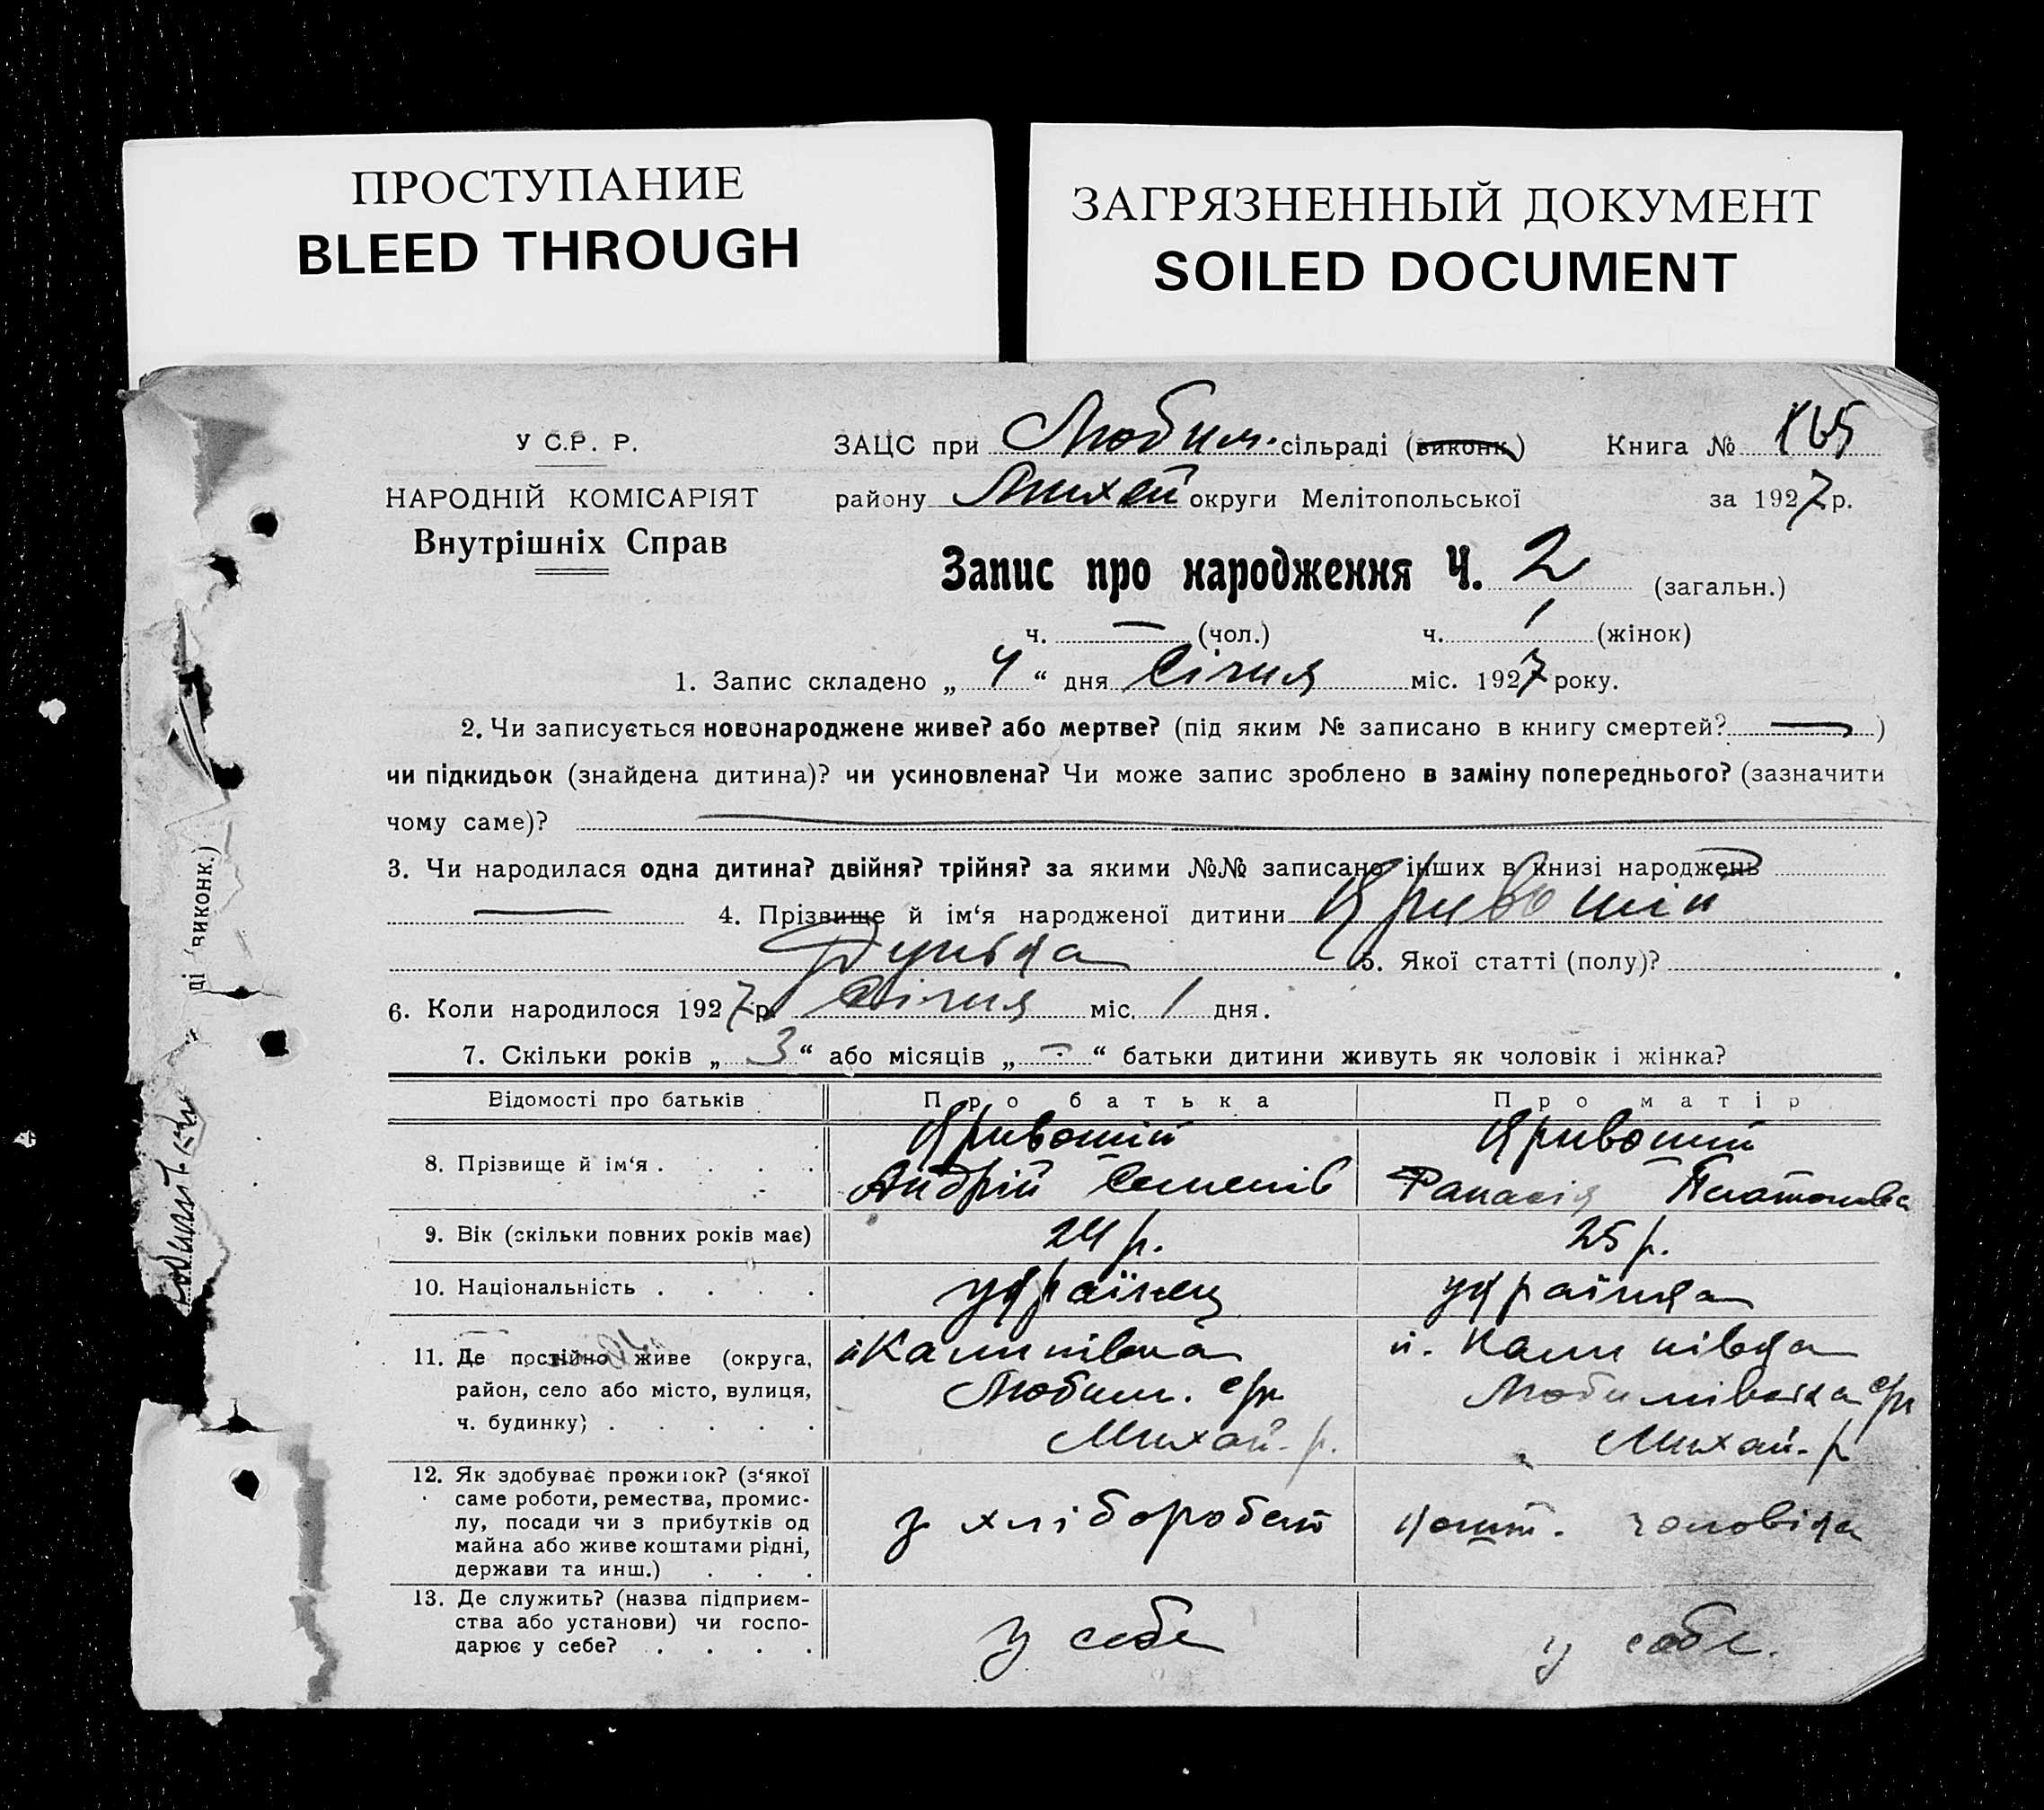 ПРОСТУПАНИЕ
BLEED THROUGH
ЗАГРЯЗНЕННЫЙ ДОКУМЕНТ
SOILED DOCUMENT
У С.Р. Р.
НАРОДНІЙ КОМІСАРІЯТ
Внутрішніх Справ
ЗАЦС при Любим. сільраді (виконк.) Книга №
району Михай округи Мелітопольської за 1927 р.
Запис про народження Ч. 2 (загальн.)
ч. — (чол.) ч. 1 (жінок)
1. Запис складено „ 4 “ дня Січня міс. 1927 року.
2. Чи записується новонароджене живе? або мертве? (під яким № записано в книгу смертей? — )
чи підкидьок (знайдена дитина)? чи усиновлена? Чи може запис зроблено в заміну попереднього? (зазначити
чому саме)? —
3. Чи народилася одна дитина? двійня? трійня? за якими №№ записано інших в книзі народжень
— 4. Прізвище й ім‘я народженої дитини Кривошій
5. Якої статті (полу)?
6. Коли народилося 1927 р. Січня міс. 1 дня.
7. Скільки років „ 3 “ або місяців „ — “ батьки дитини живуть як чоловік і жінка?
Відомості про батьків Про батька Про матір
8. Прізвище й ім‘я . . . . Кривошій Кривоший
Андрій Семенів Фанасія Платонова
9. Вік (скільки повних років має) 24 р. 25 р.
10. Національність . . . . українец українка
11. Де постійно живе (округа, район, село або місто, вулиця, ч. будинку) . . . . .
Калинівка
Любим. с/р
Михай. р.
п. Калинівка
Любимівська с/р
Михай. р
12. Як здобуває прожиток? (з‘якої
саме роботи, ремества, промис-
лу, посади чи з прибутків од
майна або живе коштами рідні,
держави та инш.) . . .
з хліборобст
кошт. чоловіка
13. Де служить? (назва підприєм-
ства або установи) чи госпо-
дарює у себе? . . . .
у себе
у себе.
ці (виконк.)